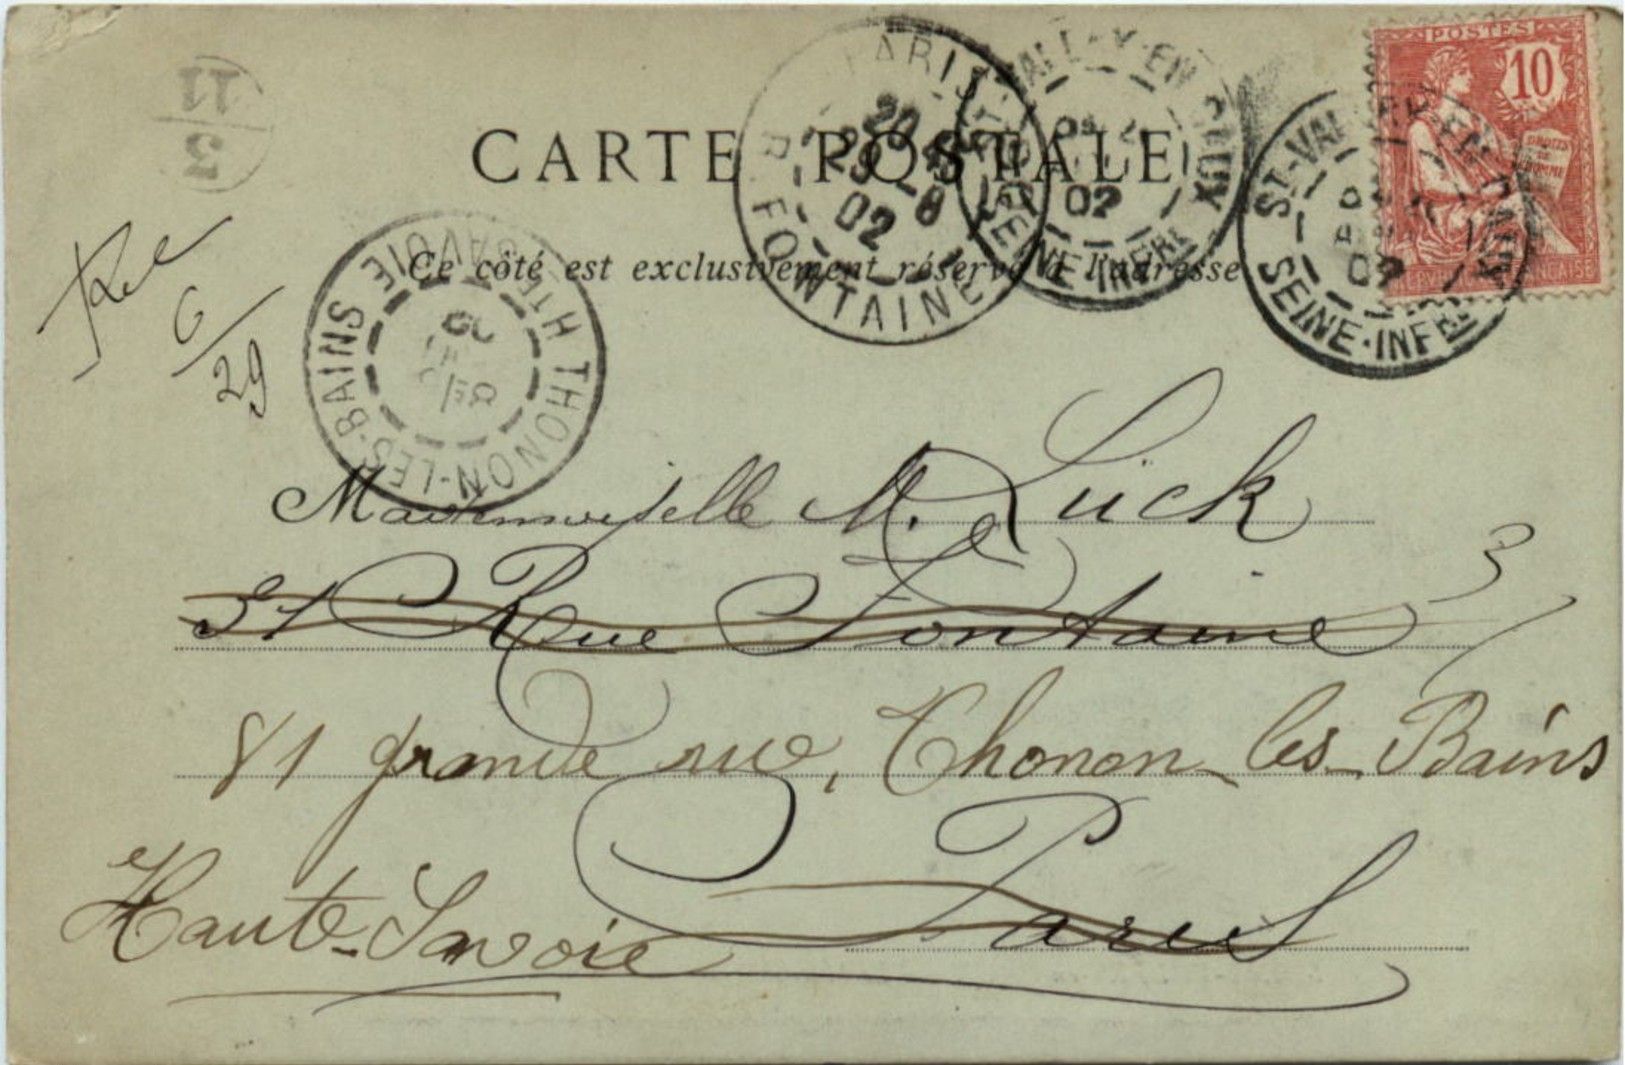 POSTES
10
DROITS DE L'HOMME
11
3
PARIS
R. FONTAINE
29 -8
02
ST-VALERY-EN-CAUX
02
SEINE-INFRE
ST-VALERY-EN-CAUX
02
SEINE-INFRE
CARTE POSTALE
Ce côté est exclusivement réservé à l'adresse
6
29
THONON-LES-BAINS
HTE SAVOIE
02
Mademoiselle M. Lück
31 Rue Fontaine
3
81 grande rue, Thonon-les-Bains
Paris
Haute-Savoie